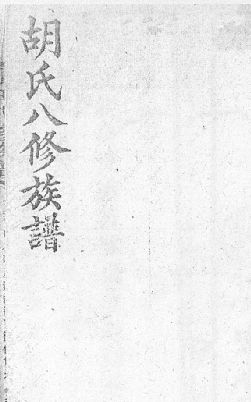 胡氏八修族譜